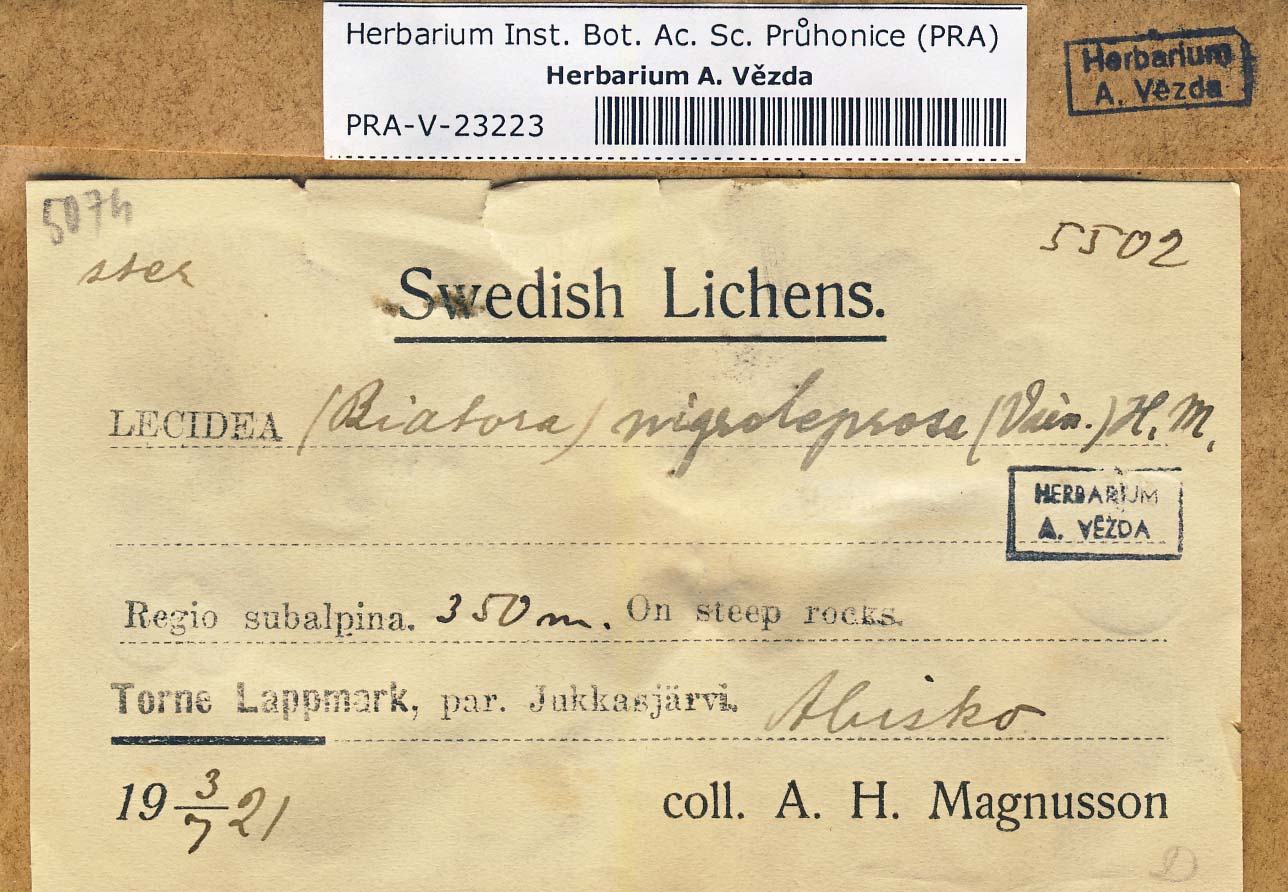 Herbarium Inst. Bot. Ac. Sc. Průhonice (PRA)
Herbarium A. Vězda
PRA-V-23223
Herbarium
A. Vězda
5502
ster
Swedish Lichens.
LECIDEA (Biatora) nigroleprosa (Vain.) H. M.
HERBARIUM
A. VĚZDA
Regio subalpina. 350 m. On steep rocks.
Torne Lappmark, par. Jukkasjärvi. Abisko
19 3/7 21
coll. A. H. Magnusson